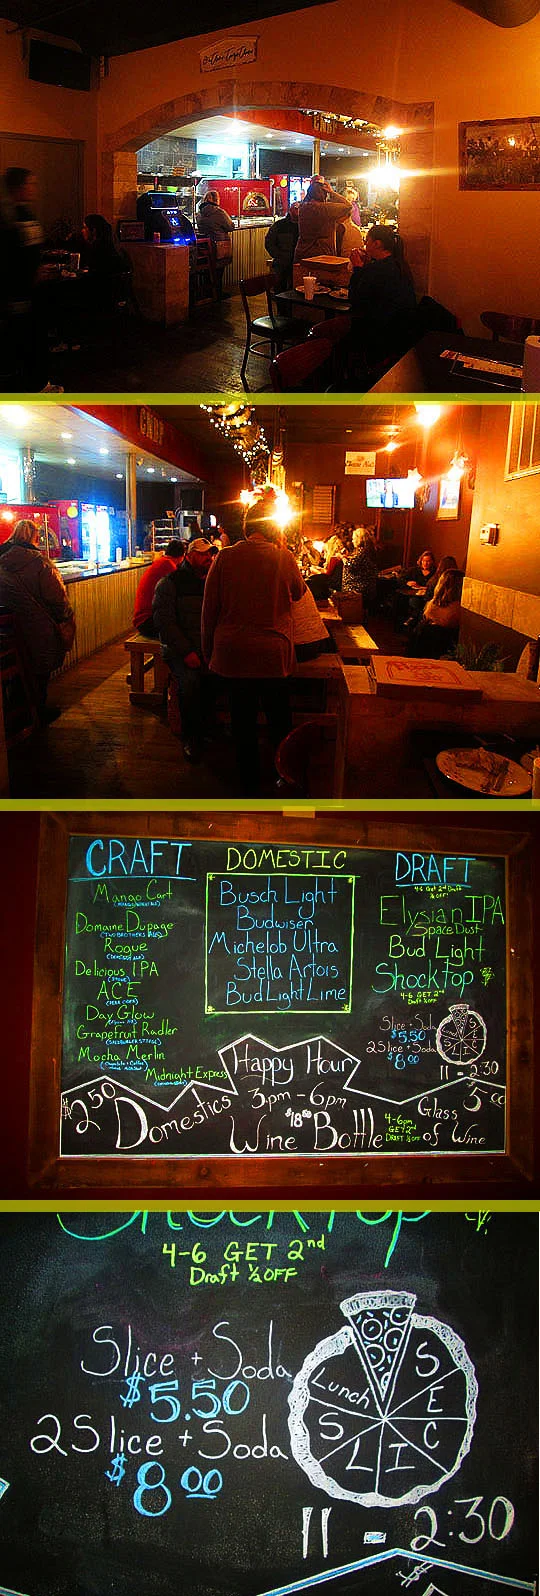 CRAFT
Mango Cart
Domaine Dupage
(TWO BROTHERS ALE)
Rogue
Delicious IPA
(STONE)
ACE
(PEAR CIDER)
Day Glow
Grapefruit Radler
Mocha Merlin
Midnight Express
DOMESTIC
Busch Light
Budwiser
Michelob Ultra
Stella Artois
Bud Light Lime
DRAFT
4-6 Get 2nd Draft
½ OFF!
Elysian IPA
Space Dust
Bud Light
Shock Top
4-6 GET 2nd
Draft ½ OFF
Slice + Soda
$5.50
2 Slice + Soda
$8.00
SLICES
11 - 2:30
Happy Hour
3pm - 6pm
$2.50
Domestics
$18.00
Wine Bottle
4-6pm
GET 2nd
DRAFT ½ OFF
Glass
of Wine
Shock Top
4-6 GET 2nd
Draft ½ OFF
Slice + Soda
$5.50
2 Slice + Soda
$8.00
Lunch
SLICES
11 - 2:30